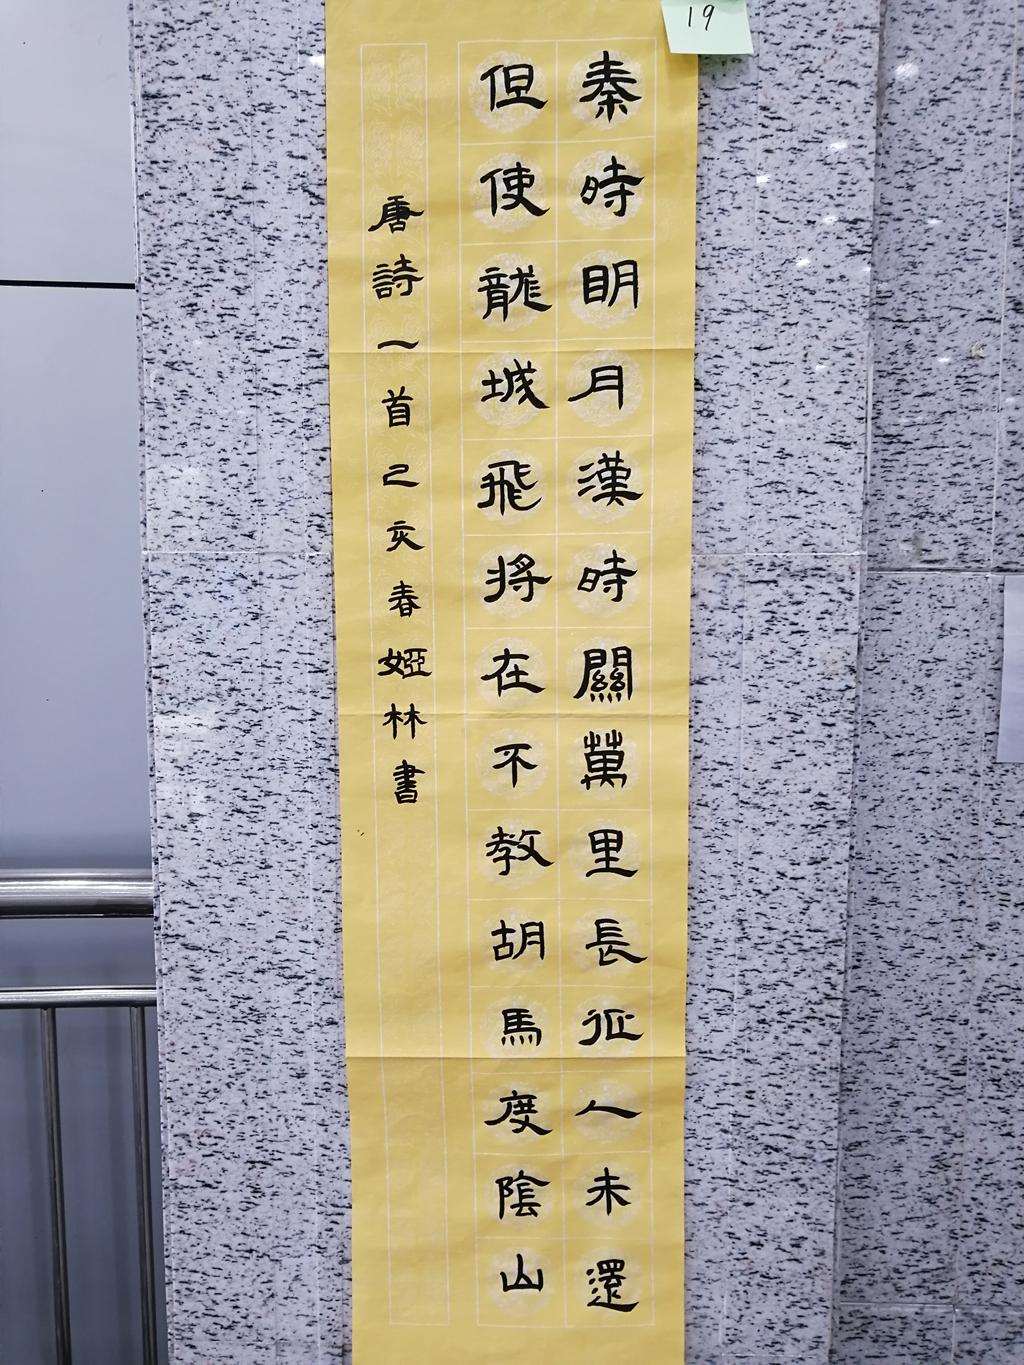 19
秦時明月漢時關萬里長征人未還
但使龍城飛將在不教胡馬度陰山
唐詩一首己亥春婭林書